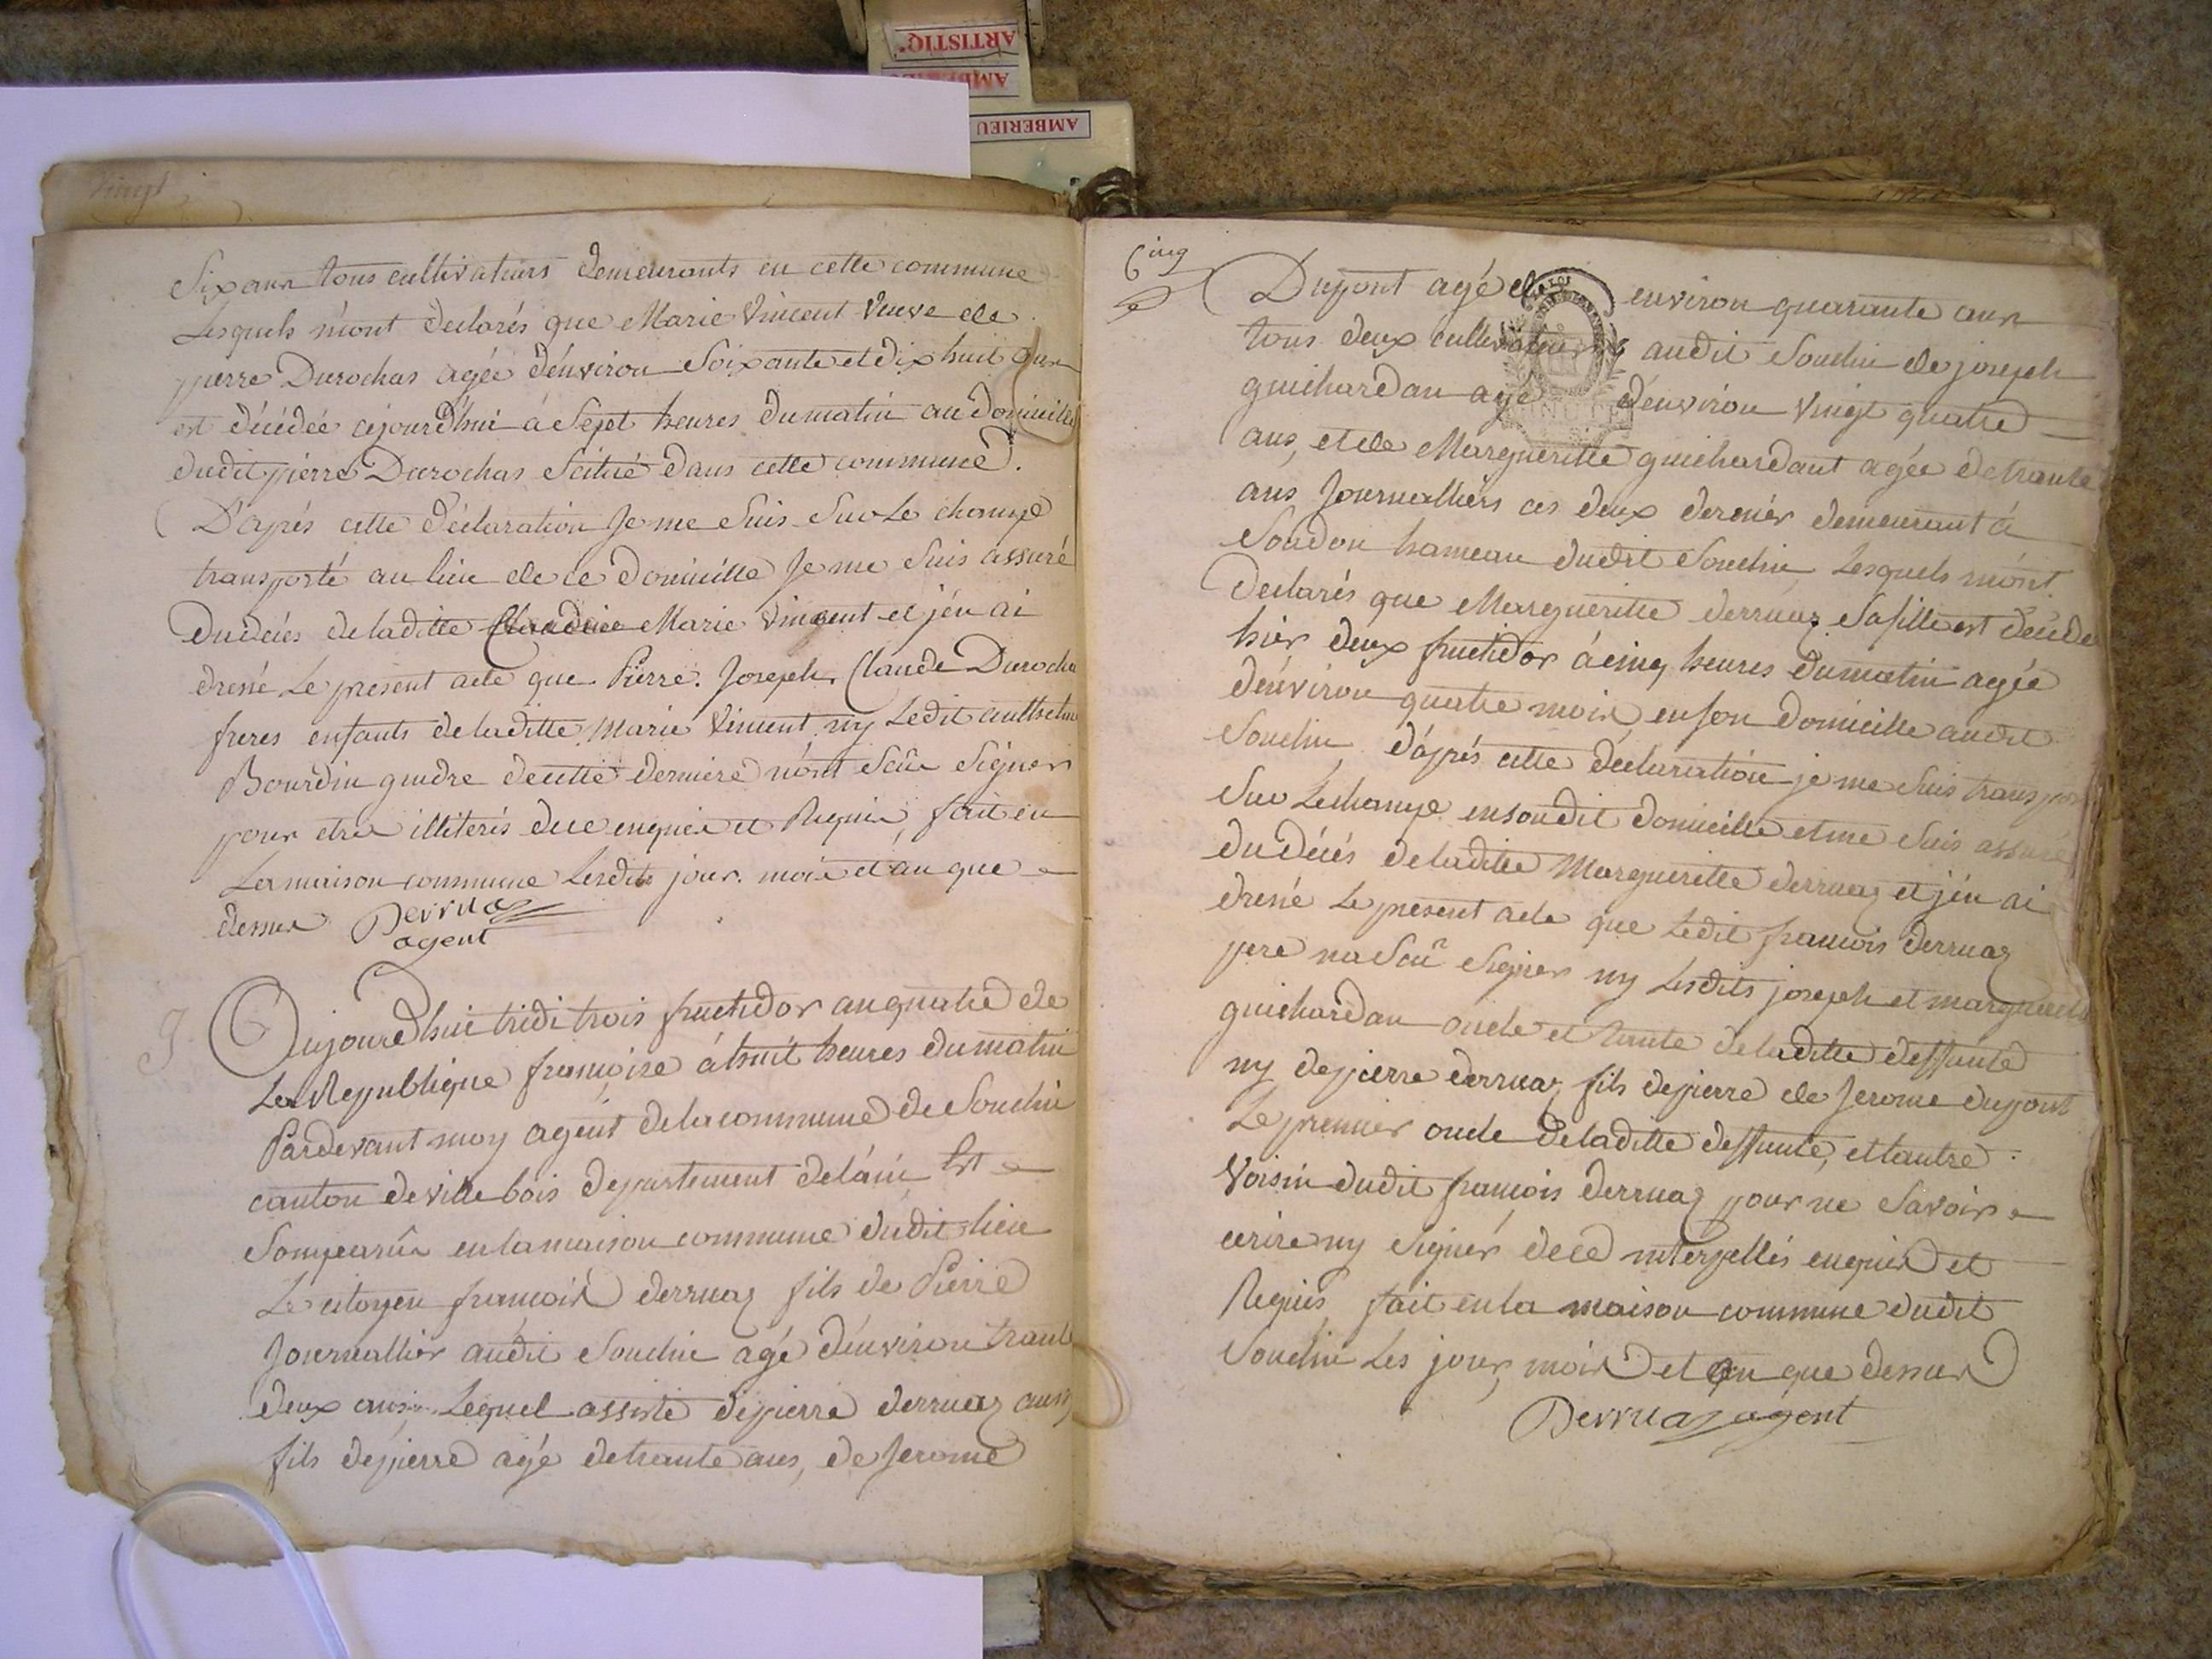 ARTISTIQ'
AMBERIEU
AMBERIEU
vingt
Six ans tous cultivateurs demeurants en cette commune
Lesquels m'ont declarés que Marie Vincent veuve de
pierre Durochas agée d'énviron Soixante et dix huit ans
est décédée cejourd'hui á Sept heures du matin au domicille
dudit pierre Durochas Scitué dans cette commune.
D'aprés cette déclaration Je me Suis Sur Le champ
transporté au lieu de ce domicille Je me Suis assuré
du décés de laditte Marie Vincent et j'én ai
dressé Le present acte que Pierre. Joseph, Claude Durochas
freres enfants de laditte Marie Vincent ny Ledit anthelme
Bourdin gendre de cette derniere n'ónt Scûs Signer
pour etre illiterés de ce enquis et Requis, fait en
La maison commune Lesdits jour. mois et án que
dessus Derruaz
agent
Aujourdhui tridi trois fructidor an quatre de
La Republique françoise á huit heures du matin
Pardevant moy agent de la commune de Souclin
canton de villebois departement de l'áin Est
Comparûs en la maison commune dudit lieu
Le citoyen françois derruaz fils de Pierre
Journallier audit Souclin agé d'énviron trante
deux ans Lequel assisté de pierre derruaz aussy
fils de pierre agé de trante ans, de Jerome
Cinq
Dupont agé de environ quarante ans
tous deux cultivateurs audit Souclin de joseph
guichardan agé d'énviron vingt quatre
ans, et de Margueritte guichardant agée de trante
ans Journalliers ces deux dernier demeurant á
Soudon hameau dudit Souclin, Lesquels m'ónt
Declarés que Margueritte derruaz Sa fille est décédé
hier deux fructidor á cinq heures du matin agée
d'énviron quatre mois, en son domicille audit
Souclin, d'áprés cette déclaration je me Suis transpor
Sur Le champ en soudit domicille et me Suis assuré
du décés de laditte Margueritte derruaz et j'én ai
dressé Le present acte que Ledit françois derruaz
pere na Scû Signer ny Lesdits joseph et margueritte
guichardan oncle et tante de laditte deffunte
ny de pierre derruaz fils de pierre de Jerome dupont
Le premier oncle de laditte deffunte, et lautre
Voisin dudit françois derruaz pour ne Savoir
ecrire ny Signér de ce interpellés enquis et
Requis, fait en la maison commune dudit
Souclin Les jour, mois et an que dessus
Derruaz agent